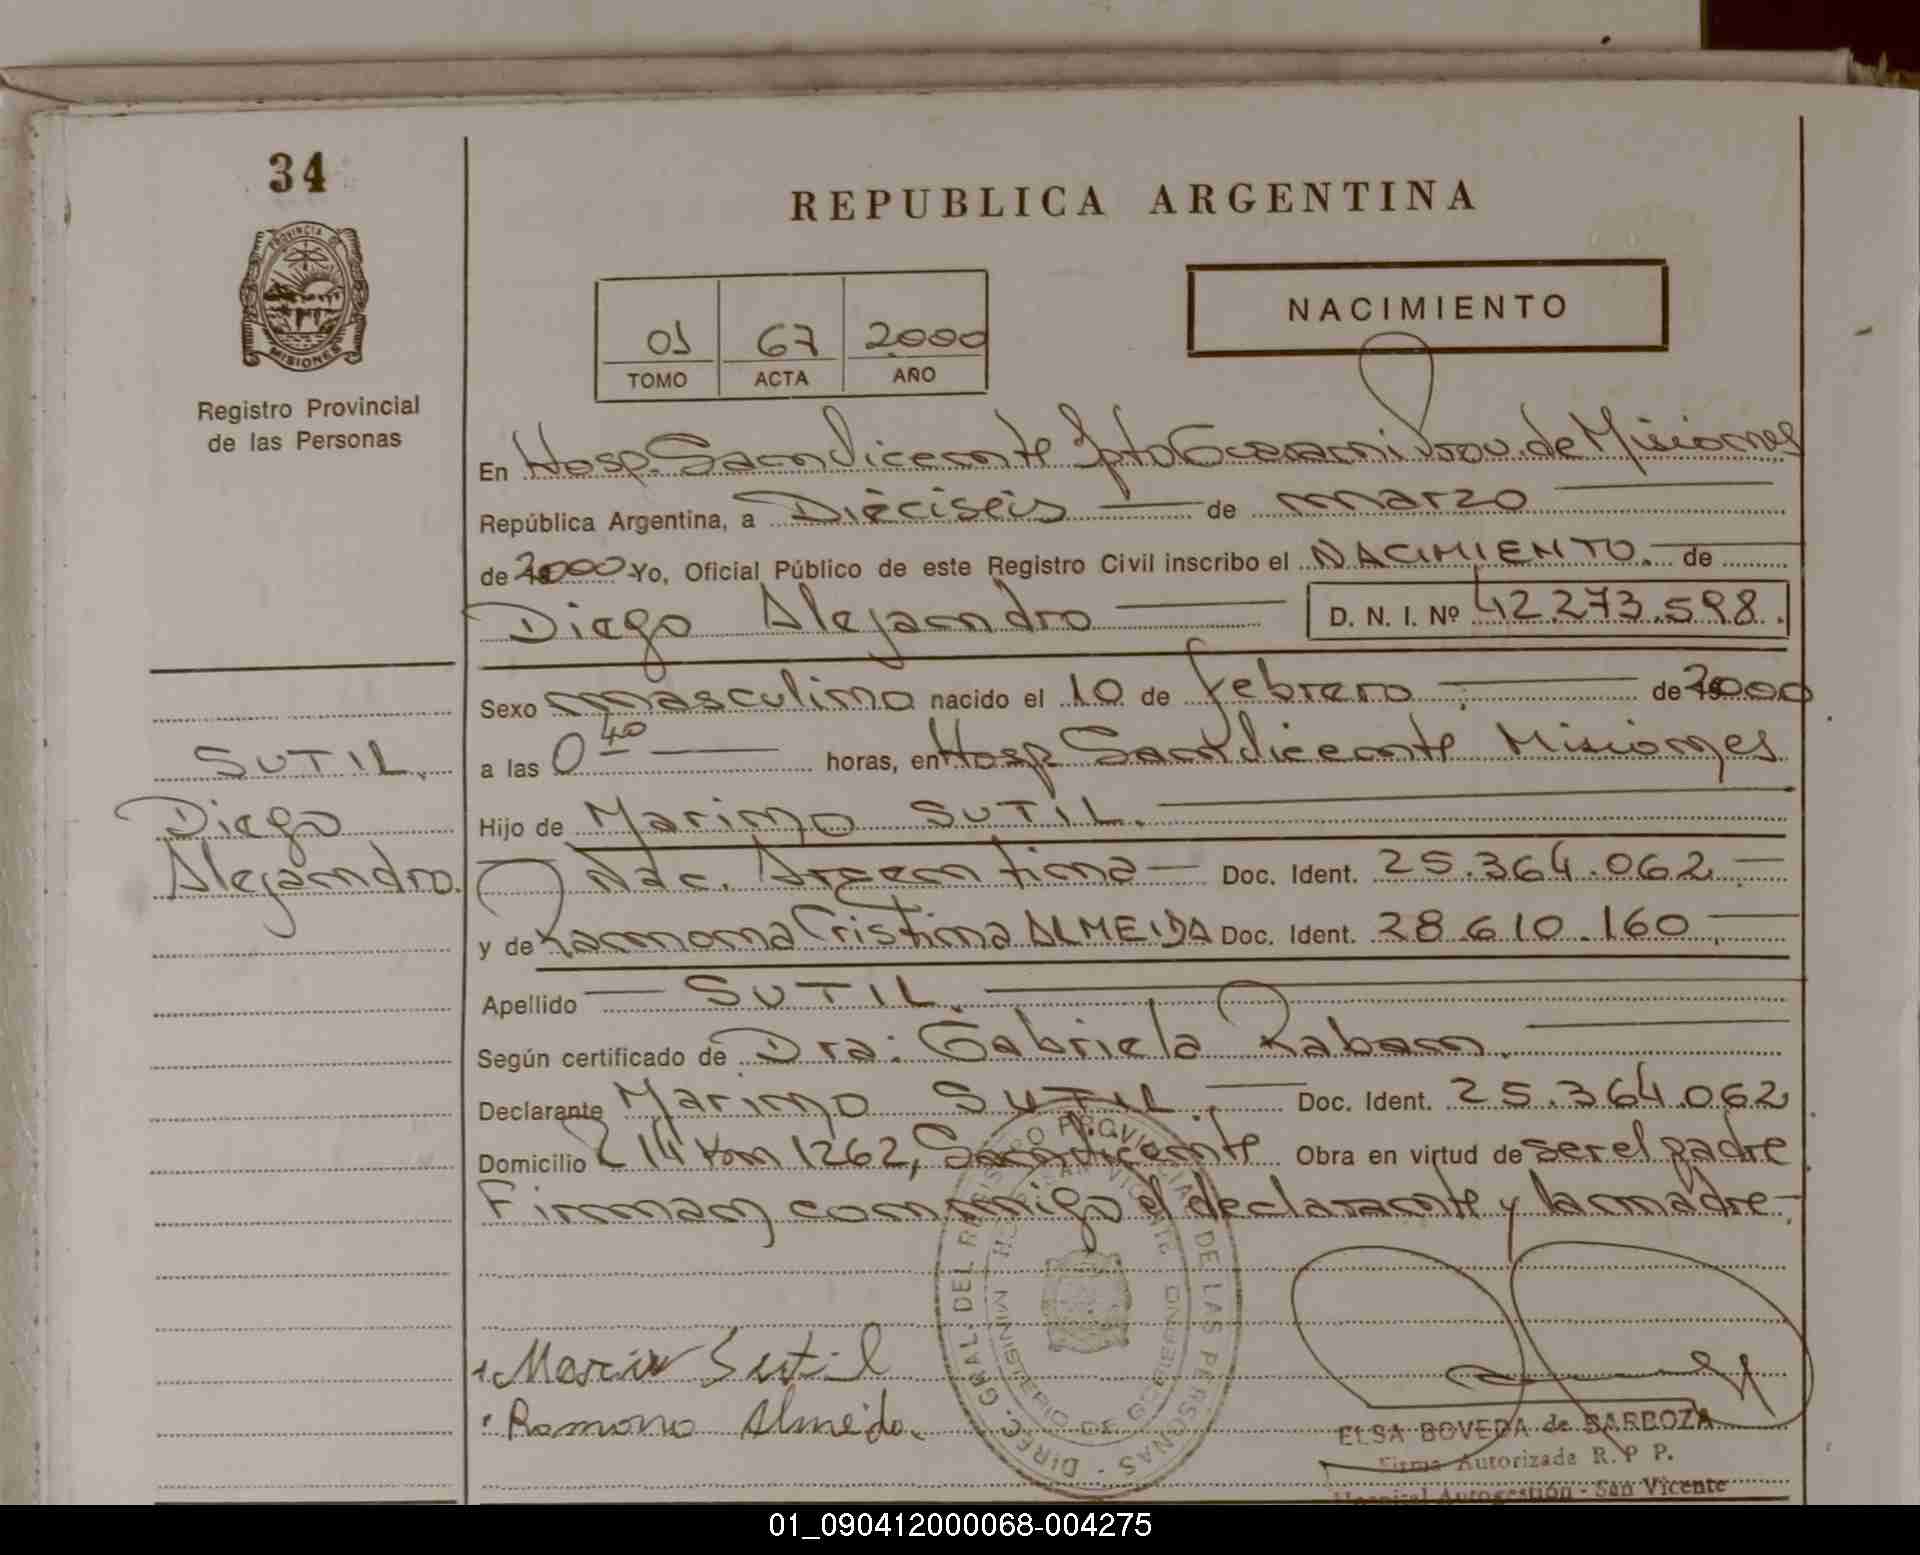 34
PROVINCIA DE
MISIONES
Registro Provincial
de las Personas
REPUBLICA ARGENTINA
01 67 2000
TOMO ACTA AÑO
NACIMIENTO
En Hosp. San Vicente Dpto Guarani Prov. de Misiones
República Argentina, a Dieciseis de marzo
de 2000 Yo, Oficial Público de este Registro Civil inscribo el NACIMIENTO. de
Diego Alejandro D. N. I. Nº 42.273.598.
Sexo masculino nacido el 10 de febrero de 2000
a las 0 40 horas, en Hosp San Vicente Misiones
Hijo de Marino SUTIL.
Nac. Argentina Doc. Ident. 25.364.062
y de Ramona Cristina ALMEIDA Doc. Ident. 28.610.160
Apellido SUTIL.
Según certificado de Dra: Gabriela Raban.
Declarante Marino SUTIL. Doc. Ident. 25.364.062
Domicilio R 14 Km 1262, San Vicente Obra en virtud de ser el padre
Firman conmigo el declarante y la madre
SUTIL.
Diego
Alejandro.
Marino Sutil
Ramona Almeida.
DIREC. GRAL. DEL REGISTRO PROVINCIAL DE LAS PERSONAS
MINISTERIO DE GOBIERNO
ELSA BOVEDA de BARBOZA
Firma Autorizada R. P P.
Hospital Autogestión - San Vicente
01_090412000068-004275